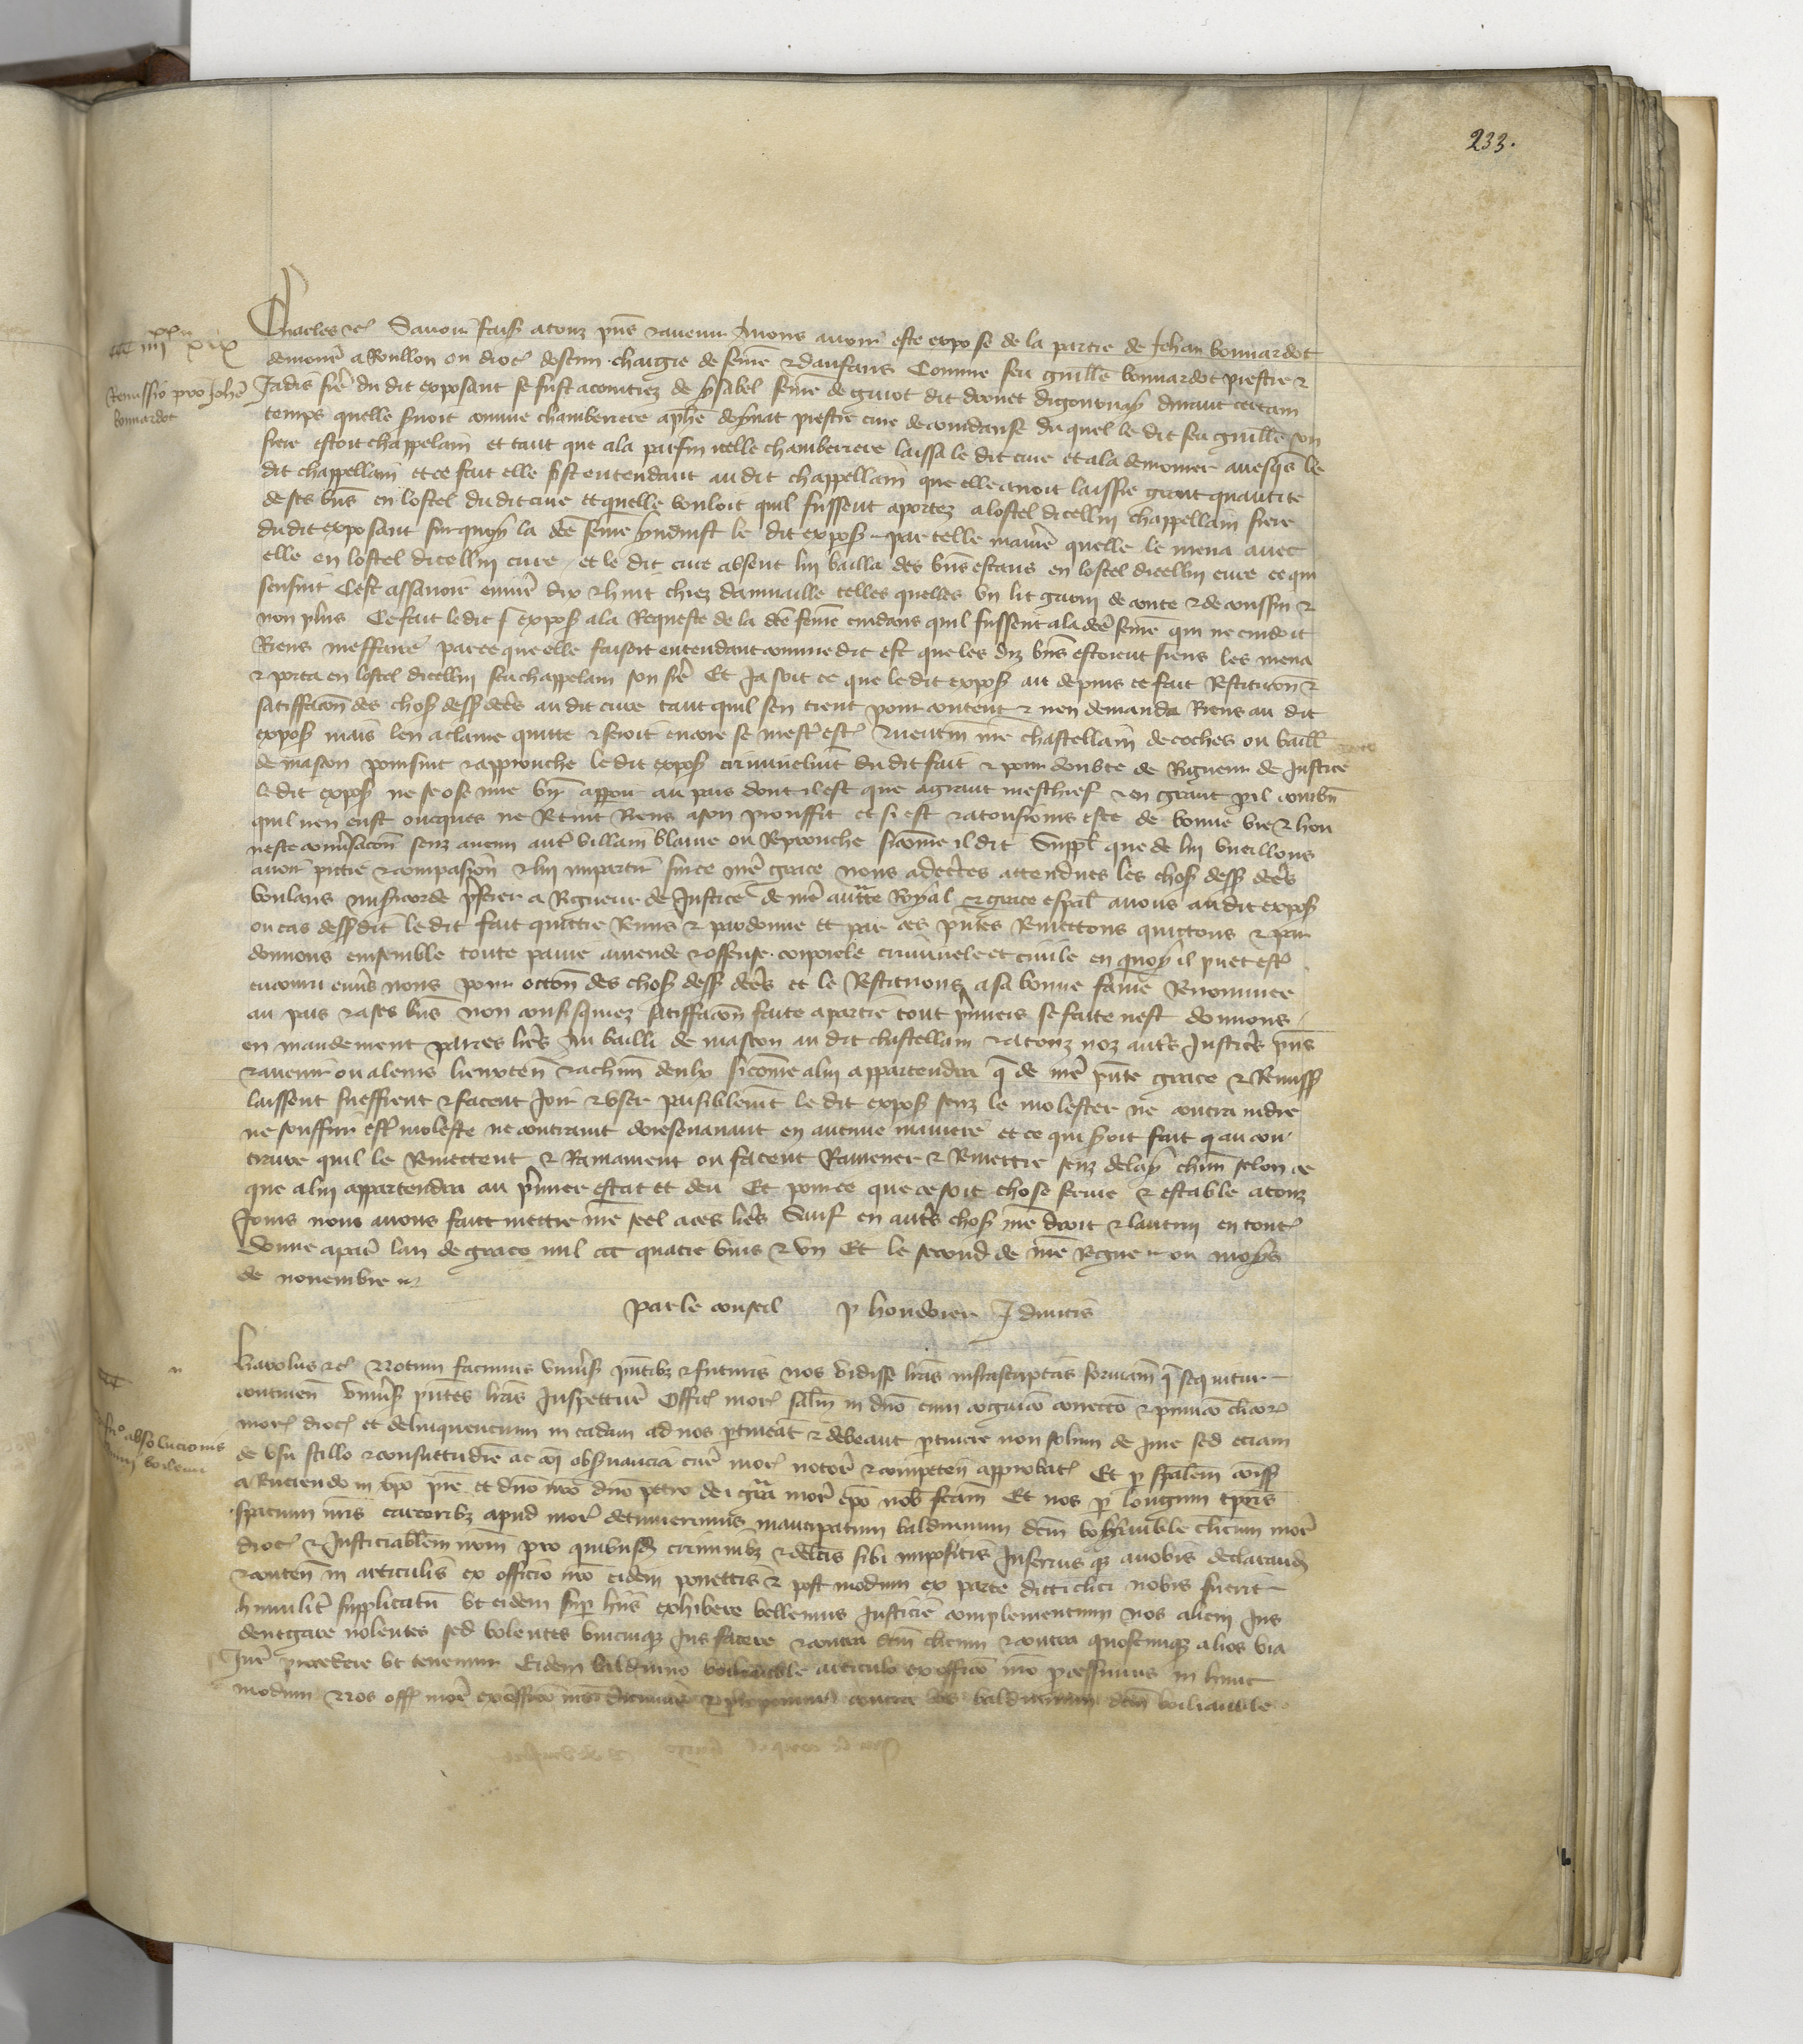 233.
Charles etc Savoir faisons a touz presens et avenir Nous avoir este expose de la partie de Jehan bonnardot
demourant a Roullon ou dioc dostun chargie de femme et denfans Comme feu guille bonnardot prestre et
Jadis frere du dit exposant se fust acointiez de ysabel femme de guiot dit drouet digontnay durant certain
temps quelle servoit comme chamberiere a phe doynat prestre cure de coindanse du quel le dit feu guille son
frere estoit chappelain et tant que a la parfin icelle chamberiere laissa le dit cure et ala demourer avesques le
dit chappellain et ce fait elle fist entendant au dit chappellain que elle avoit laissie grant quantite
de ses biens en lostel du dit cure et quelle vouloit quil fussent aportez a lostel dicellui chappellain frere
du dit exposant sur quoy la dce femme yndust le dit expos par telle maniere quelle le mena avec
elle en lostel dicellui cure et le dit cure absent lui bailla des biens estans en lostel dicellui cure ce qui
sensuit Cest assavoir environ dix et huit chiez daumaille telles quelles un lit garni de coute et de coussin et
non plus Ce fait le dit expos a la Requeste de la dce femme cuidans quil fussent a la dce femme qui ne cuidoit
Riens meffaire parce que elle faisoit entendant comme dit est que les diz biens estoient siens les mena
et porta en lostel dicellui feu chappelain son frere Et Ja soit ce que le dit expos ait depuis ce fait Restitucion et
satisfacion des choses dessus dces au dit cure tant quil sen tient pour content et nen demanda Riens au dit
expos mais len a clame quitte et feroit encore se mestier est Neantmoins nre chastellain de coches ou baill
de mascon poursuit et approuche le dit expos criminelment du dit fait et pour doubte de Rigueur de Justice
le dit expos ne se ose mie bien apparoir au pais dont il est que a grant meschief et en grant peril combien
quil nen eust oncques ne Retint Riens a son prouffit et si est et a tousjours este de bonne vie et hon
neste conversacion senz aucun autre villain blame ou Reprouche si comme il dit Suppl que de lui vueillons
avoir pitie et compassion et lui impartir sur ce nre grace nous adecertes attendues les choses dess dces
voulans misericorde preferer a Rigueur de Justice de nre auttte Royal et grace especial avons au dit expos
ou cas dessus dit le dit fait quittie Remis et pardonne et par ces presentes Remettons quictons et par
donnons ensemble toute paine amende et offense corporele criminele et civile en quoy il puet estre
encouru envers nous pour occasion des choses dess dces et le Restituons a sa bonne fame Renommee
au pais et a ses biens non confisquiez satisfacion faite a partie tout premiers se faite nest donnons
en mandement par ces lettres Au bailli de mascon au dit chastellain et a touz noz autres Justiciers presens
et avenir ou a leurs lieuxtenans et a chascun deulx si comme a lui appartendra que de nre presente grace et Remiss
laissent sueffrent et facent Joir et user paisiblement le dit expos senz le molester ne contraindre
ne souffrir estre moleste ne contraint doresenavant en aucune maniere et ce qui seroit fait au con
traire quil le Remettent et Ramainent ou facent Ramener et Remettre senz delay chascun selon ce
que a lui appartendra au premier estat et deu Et pour ce que ce soit chose ferme et estable a touz
Jours nous avons fait mettre nre seel a ces lettres Sauf en autres choses nre droit et lautrui en toutes
Donne a paris lan de grace mil ccc quatre vins et un Et le second de nre Regne ou moys
de novembre
Par le conseil P houdoier J divitis
Remissio pro Johe
bonnardot
Karolus etc Notum facimus universis presentibus et futuris nos vidisse lras infrascriptas formam que sequitur
continen Universis presentes lras Inspecturis Offic mor salm in dno cum cognicio correctio et punicio clicor
mor dioc et delinquencium in eadem ad nos pertineat et debeant pertinere non solum de Jure sed eciam
de usu stillo et consuetudine ac observancia curie mor notor et competen approbat Et per spalem comiss
a Reverendo in xpo pre et dno nro dno petro dei gra mor epo nob fcam Et nos per longum tporis
spacium nris carceribus apud mor detinuerimus mancipatum balduinum dcm clicum mor
dioc et Justiciablem nrm pro quibusdam criminibus et delictis sibi impositis Inferius a nobis declarand
et conten in articulis ex officio nro eidem ponettis et post modum ex parte dicti clici nobis fuerit
humiliter supplicatum ut eidem super hiis exhibere vellemus Justicie complementum nos alicui Jus
denegare nolentes sed volentes unicuique Jus facere et contra dcm clicum et contra quoscumque alios via
Juris procedere ut tenemur Eidem balduino articulo ex officio nro processimus in hunc
modum Nos off mor ex officio nro dicimus et proponimus contra balduinum dcm
absolucionis